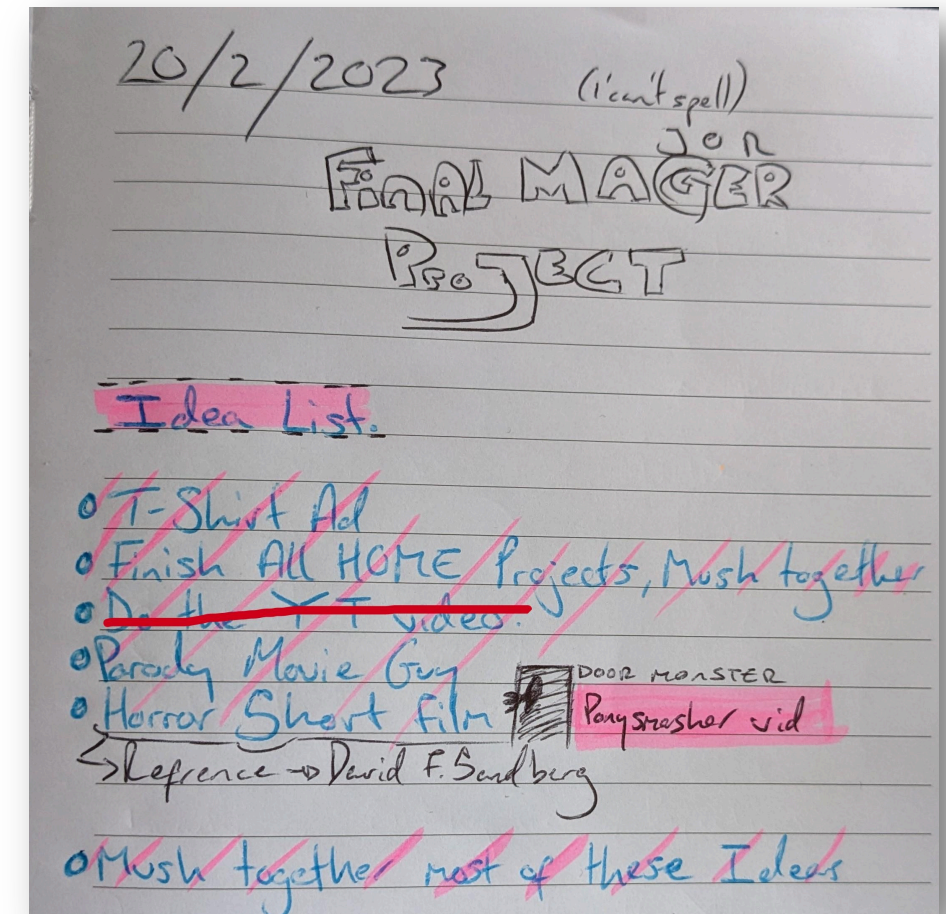 20/2/2023
(i can't spell)
JOR
FinAL MAGER
PROJECT
Idea List.
T-Shirt Ad
Finish All HOME Projects, Mush together
Do the YT video.
Parody Movie Guy
DOOR MONSTER
Horror Short film
Ponysmasher vid
Refrence → David F. Sandberg
Mush together most of these Ideas